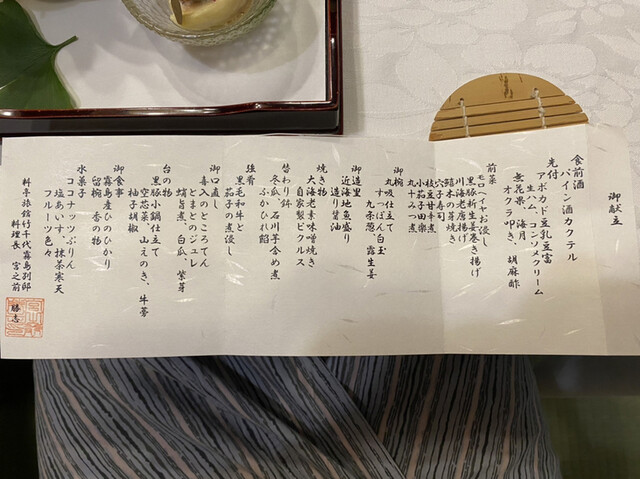 御献立
食前酒
パイン酒カクテル
先付
アボカド豆乳豆富
生ハム、コンソメクリーム
無花果、海月
オクラ叩き、胡麻酢
前菜
モロヘイヤお浸し
黒豚新生姜巻き揚げ
川海老唐揚げ
蓮木の芽焼き
穴子寿司
枝豆甘辛煮
小茄子田楽
丸十みつ煮
御椀
丸吸い仕立て
すっぽん、白玉
九条葱、露生姜
御造里
近海地魚盛り
造り醤油
焼き物
大海老素味噌焼き
自家製ピクルス
替わり鉢
冬瓜、石川芋含め煮
ふかひれ餡
強肴
黒毛和牛と
茄子の煮浸し
御口直し
喜入のところてん
とまとのジュレ
蛸旨煮、白瓜、紫芽
台の物
黒豚小鍋仕立て
空芯菜、山えのき、牛蒡
柚子胡椒
御食事
霧島産ひのひかり
留椀、香の物
水菓子
ココナッツぷりん
塩あいす、抹茶寒天
フルーツ色々
料亭旅館竹千代霧島別邸
料理長 宮之前 勝志